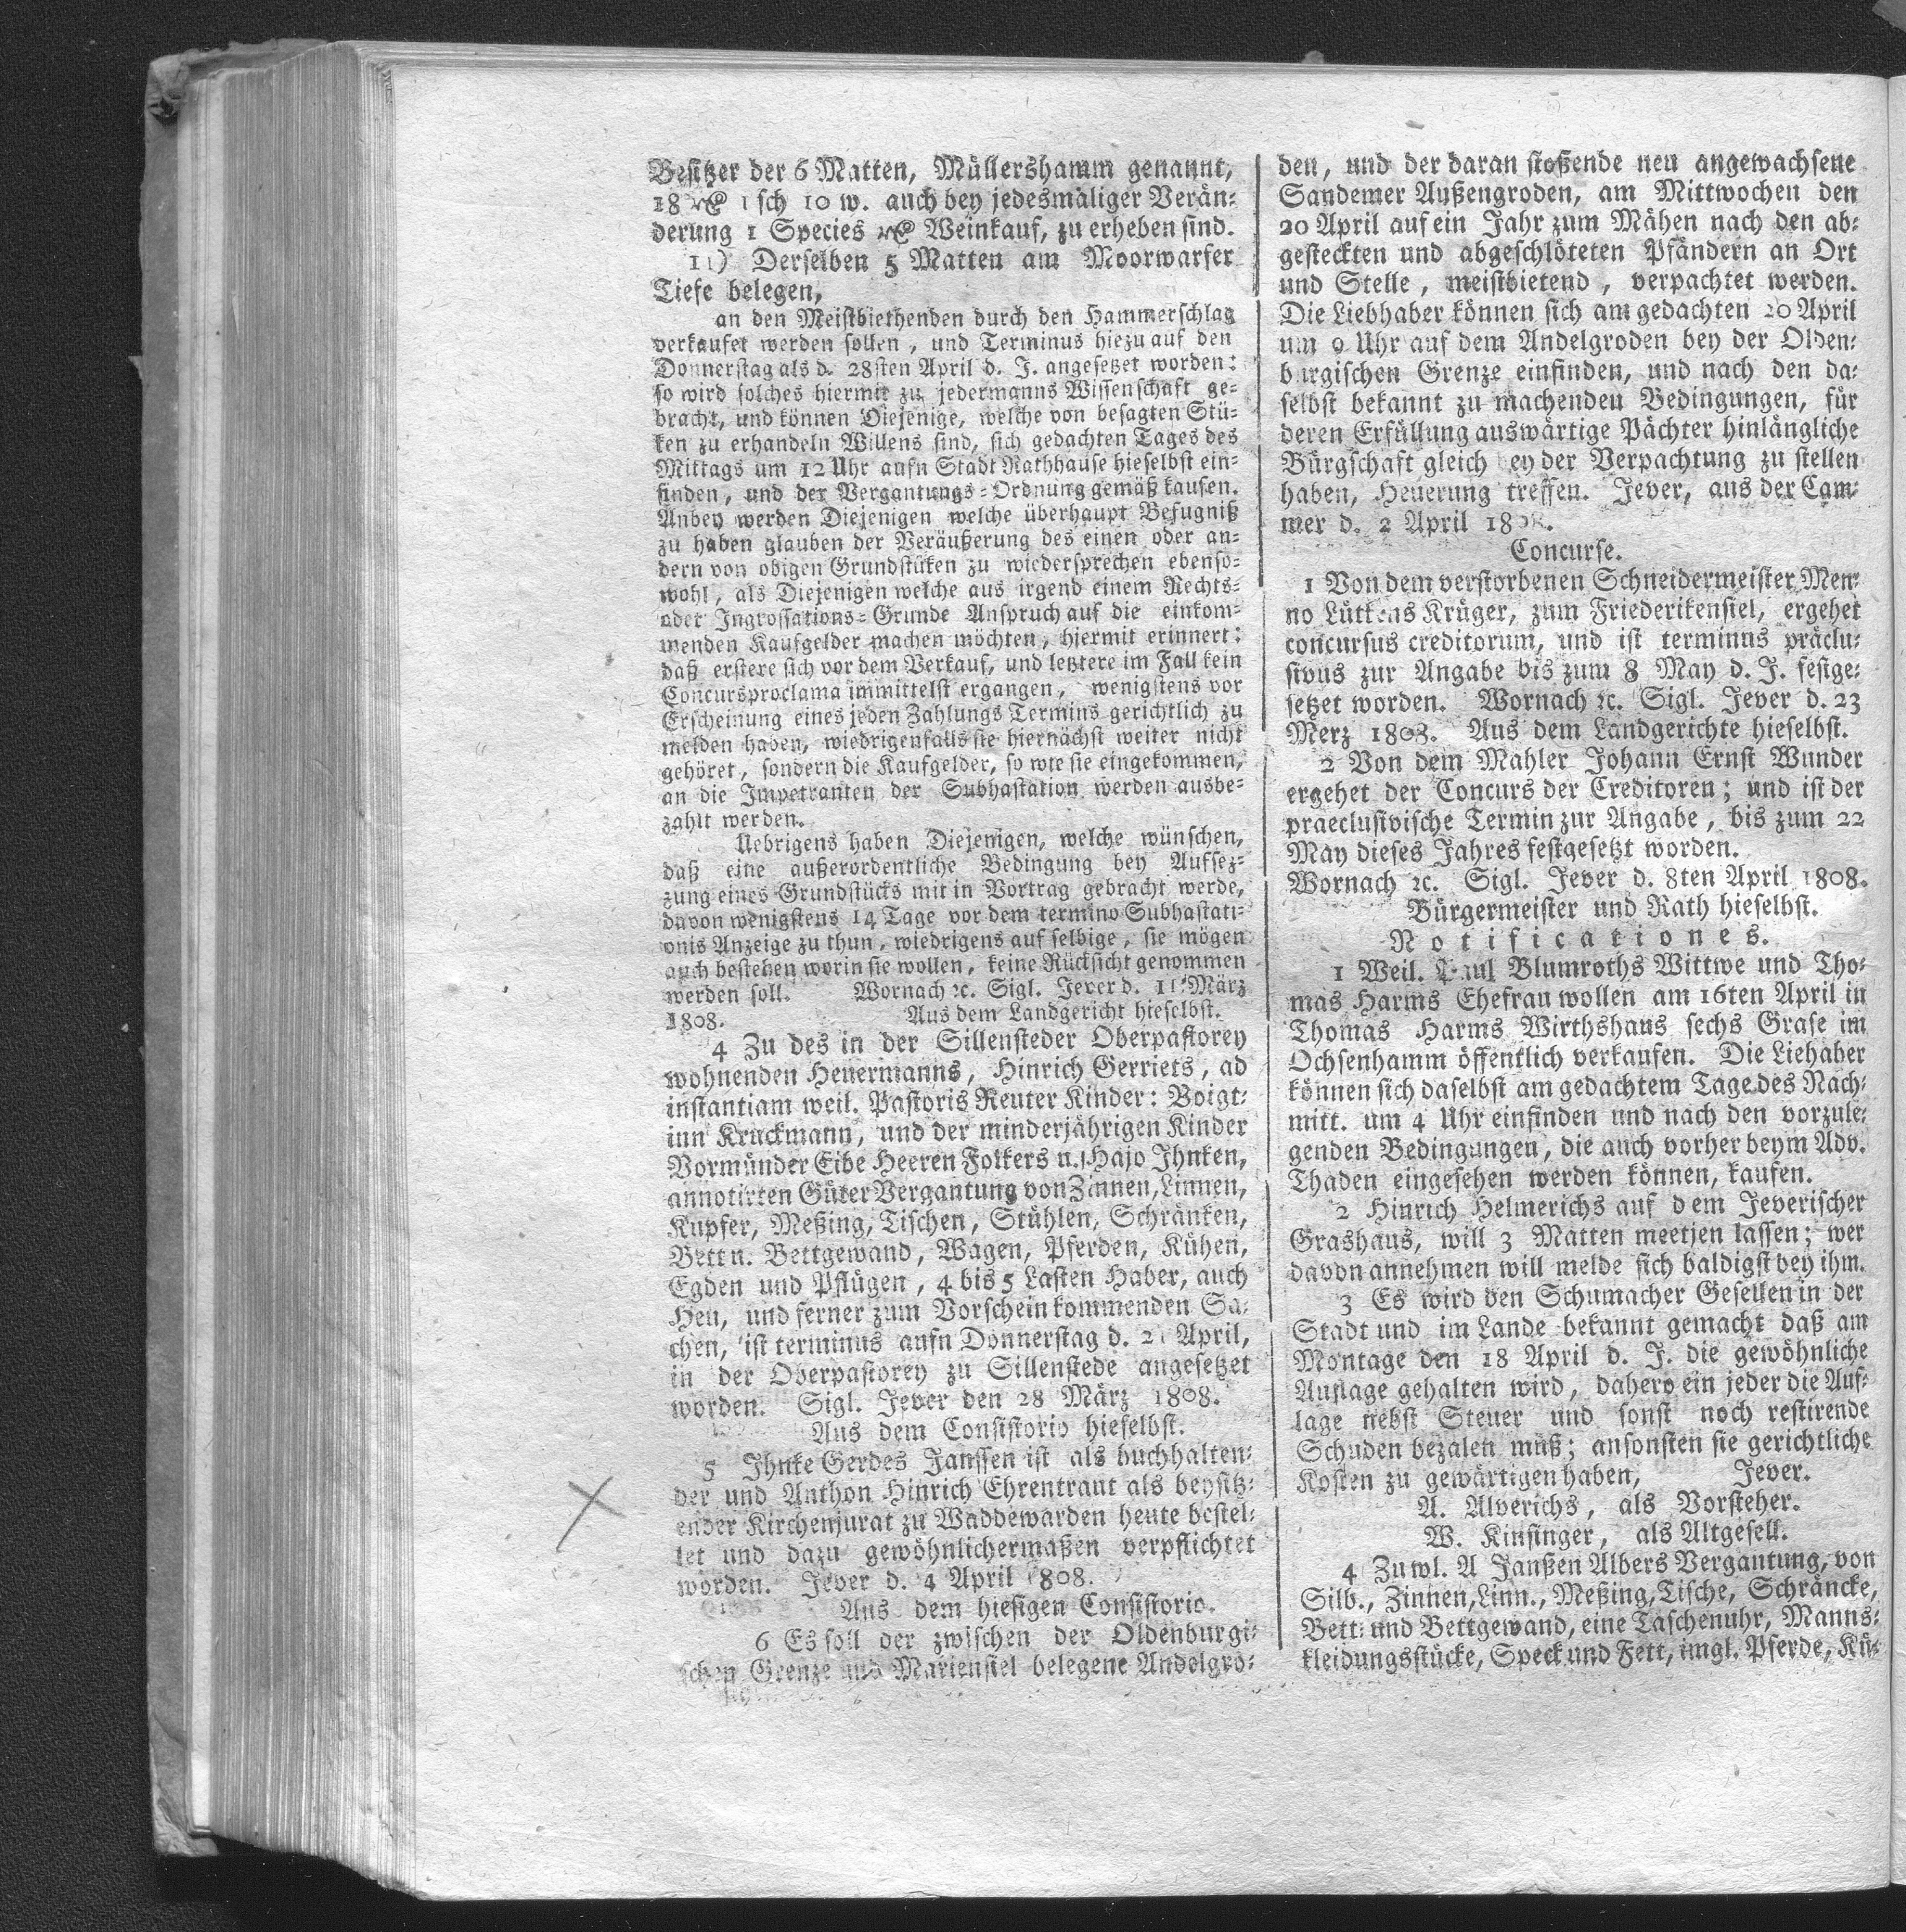 Besitzer der 6 Matten, Müllershamm genannt,
18 rℓ 1 sch 10 w. auch bey jedesmaliger Verän-
derung 1 Species rℓ Weinkauf, zu erheben sind.
11) Derselben 5 Matten am Moorwarfer
Tiefe belegen,
an den Meistbiethenden durch den Hammerschlag
verkaufet werden sollen, und Terminus hiezu auf den
Donnerstag als d. 28sten April d. J. angesetzet worden:
so wird solches hiermit zu jedermanns Wissenschaft ge-
bracht, und können Diejenige, welche von besagten Stü-
ken zu erhandeln Willens sind, sich gedachten Tages des
Mittags um 12 Uhr aufn Stadt Rathhause hieselbst ein-
finden, und der Vergantungs-Ordnung gemäß kaufen.
Anbey werden Diejenigen welche überhaupt Befugniß
zu haben glauben der Veräußerung des einen oder an-
dern von obigen Grundstüken zu wiedersprechen ebenso-
wohl, als Diejenigen welche aus irgend einem Rechts-
oder Ingrossations-Grunde Anspruch auf die einkom-
menden Kaufgelder machen möchten, hiermit erinnert:
daß erstere sich vor dem Verkauf, und letztere im Fall kein
Concursproclama immittelst ergangen, wenigstens vor
Erscheinung eines jeden Zahlungs Termins gerichtlich zu
melden haben, wiedrigenfalls sie hiernächst weiter nicht
gehöret, sondern die Kaufgelder, so wie sie eingekommen,
an die Impetranten der Subhastation werden ausbe-
zahlt werden.
Uebrigens haben Diejenigen, welche wünschen,
daß eine außerordentliche Bedingung bey Aufsez-
zung eines Grundstücks mit in Vortrag gebracht werde,
davon wenigstens 14 Tage vor dem termino Subhastati-
onis Anzeige zu thun, wiedrigens auf selbige, sie mögen
auch bestehen worin sie wollen, keine Rücksicht genommen
werden soll. Wornach ꝛc. Sigl. Jever d. 11 März
1808. Aus dem Landgericht hieselbst.
4 Zu des in der Sillensteder Oberpastorey
wohnenden Heuermanns, Hinrich Gerriets, ad
instantiam weil. Pastoris Reuter Kinder: Voigt-
inn Kruckmann, und der minderjährigen Kinder
Vormünder Eibe Heeren Folkers u. Hajo Ihnken,
annotirten Güter Vergantung von Zinnen, Linnen,
Kupfer, Meßing, Tischen, Stühlen, Schränken,
Bett u. Bettgewand, Wagen, Pferden, Kühen,
Egden und Pflügen, 4 bis 5 Lasten Haber, auch
Heu, und ferner zum Vorschein kommenden Sa-
chen, ist terminus aufn Donnerstag d. 21 April,
in der Oberpastorey zu Sillenstede angesetzet
worden. Sigl. Jever den 28 März 1808.
Aus dem Consistorio hieselbst.
5 Ihnke Gerdes Janssen ist als buchhalten-
der und Anthon Hinrich Ehrentraut als beysitz-
ender Kirchenjurat zu Waddewarden heute bestel-
let und dazu gewöhnlichermaßen verpflichtet
worden. Jever d. 4 April 1808.
Aus dem hiesigen Consistorio.
6 Es soll der zwischen der Oldenburgi-
schen Grenze und Mariensiel belegene Andelgro-
den, und der daran stoßende neu angewachsene
Sandemer Außengroden, am Mittwochen den
20 April auf ein Jahr zum Mähen nach den ab-
gesteckten und abgeschlöteten Pfändern an Ort
und Stelle, meistbietend, verpachtet werden.
Die Liebhaber können sich am gedachten 20 April
um 9 Uhr auf dem Andelgroden bey der Olden-
burgischen Grenze einfinden, und nach den da-
selbst bekannt zu machenden Bedingungen, für
deren Erfüllung auswärtige Pächter hinlängliche
Bürgschaft gleich bey der Verpachtung zu stellen
haben, Heuerung treffen. Jever, aus der Cam-
mer d. 2 April 1808.
Concurse.
1 Von dem verstorbenen Schneidermeister Men-
no Lütkens Krüger, zum Friederikensiel, ergehet
concursus creditorum, und ist terminus präclu-
sivus zur Angabe bis zum 8 May d. J. festge-
setzet worden. Wornach ꝛc. Sigl. Jever d. 23
Merz 1808. Aus dem Landgerichte hieselbst.
2 Von dem Mahler Johann Ernst Wunder
ergehet der Concurs der Creditoren; und ist der
praeclusivische Termin zur Angabe, bis zum 22
May dieses Jahres festgesetzt worden.
Wornach ꝛc. Sigl. Jever d. 8ten April 1808.
Bürgermeister und Rath hieselbst.
Notificationes.
1 Weil. Paul Blumroths Wittwe und Tho-
mas Harms Ehefrau wollen am 16ten April in
Thomas Harms Wirthshaus sechs Grase im
Ochsenhamm öffentlich verkaufen. Die Liehaber
können sich daselbst am gedachtem Tage des Nach-
mitt. um 4 Uhr einfinden und nach den vorzule-
genden Bedingungen, die auch vorher beym Adv.
Thaden eingesehen werden können, kaufen.
2 Hinrich Helmerichs auf dem Jeverischer
Grashaus, will 3 Matten meetjen lassen; wer
davon annehmen will melde sich baldigst bey ihm.
3 Es wird den Schumacher Gesellen in der
Stadt und im Lande bekannt gemacht daß am
Montage den 18 April d. J. die gewöhnliche
Auflage gehalten wird, dahero ein jeder die Auf-
lage nebst Steuer und sonst noch restirende
Schuden bezalen muß; ansonsten sie gerichtliche
Kosten zu gewärtigen haben, Jever.
A. Alverichs, als Vorsteher.
W. Kinsinger, als Altgesell.
4 Zu wl. A Janßen Albers Vergantung, von
Silb., Zinnen, Linn., Meßing, Tische, Schräncke,
Bett- und Bettgewand, eine Taschenuhr, Manns-
kleidungsstücke, Speck und Fett, imgl. Pferde, Kü-